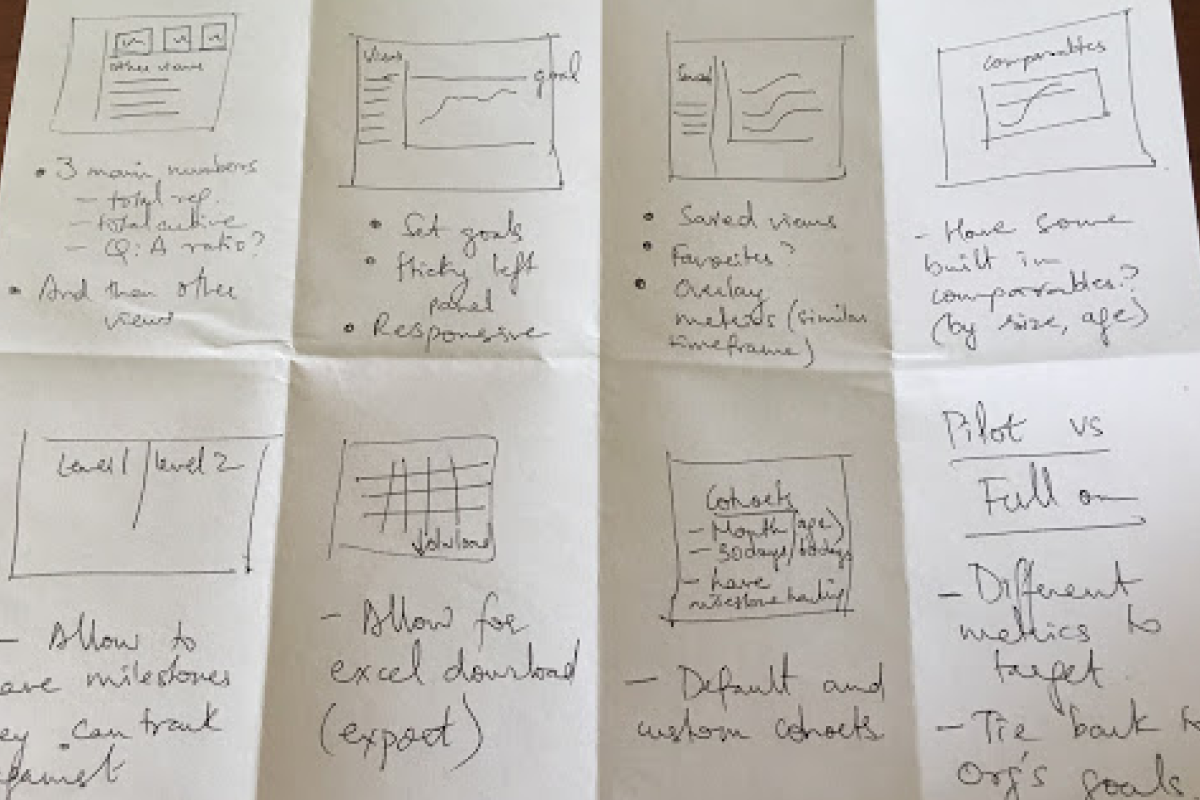 other views
• 3 main numbers
– total rep.
– total active
– Q: A ratio?
• And then other
views
Views
goal
• Set goals
• Sticky left
panel
• Responsive
Saved
• Saved views
• Favorites?
• Overlay
metrics (similar
timeframe)
Comparables
– Have some
built in
comparables?
(by size, age)
Level 1 | Level 2
– Allow to
milestones
can track
against
– Allow for
excel download
(export)
Cohorts
– Month (age)
– 30 days/60 days
– have
milestone
– Default and
custom cohorts
Pilot vs
Full on
– Different
metrics to
target.
– Tie back to
Org's goals.